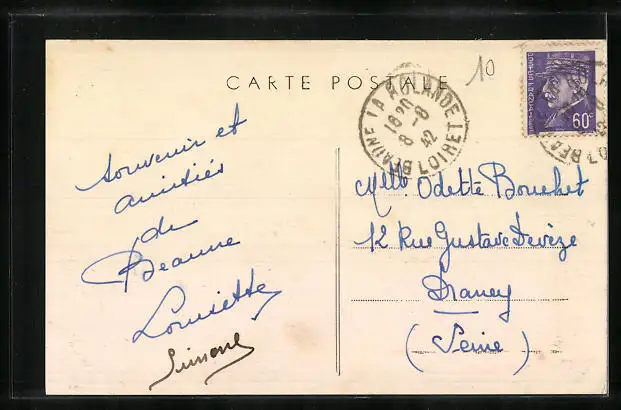 CARTE POSTALE
10
BEAUNE LA ROLANDE
LOIRET
18 20
8 - 8
42
60c
Souvenir et
amitiés
de
Beaune
Louisette
Simone
Melle Odette Bouchet
12 Rue Gustave Devèze
Drancy
(Seine)